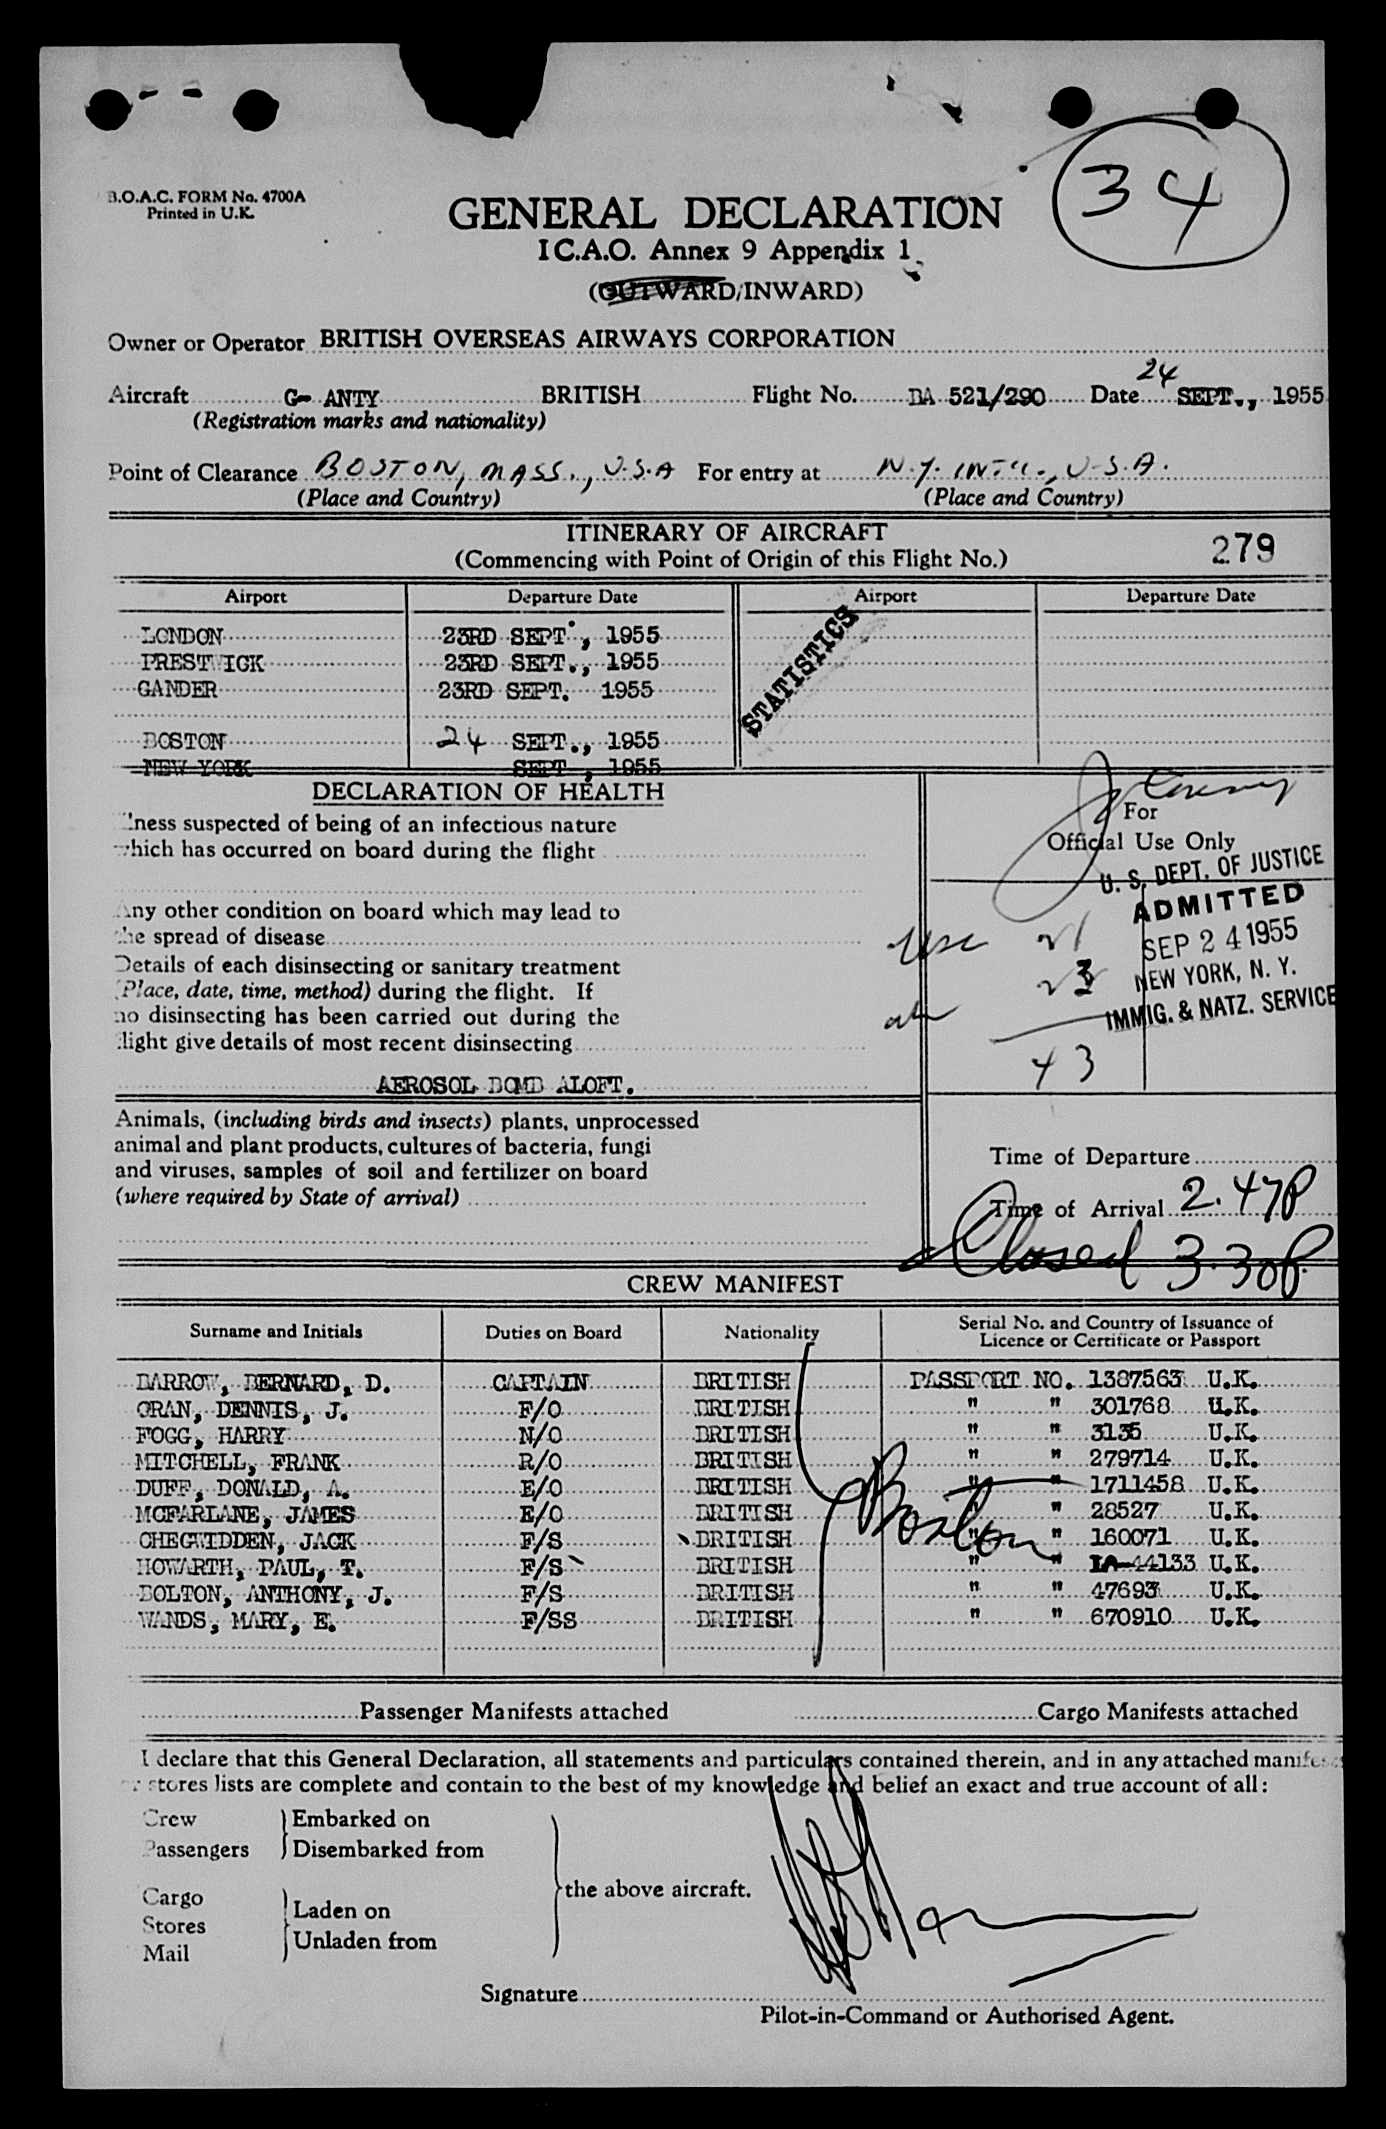 34
B.O.A.C. FORM No. 4700A
Printed in U.K.
GENERAL DECLARATION
I C.A.O. Annex 9 Appendix 1
(OUTWARD/INWARD)
Owner or Operator BRITISH OVERSEAS AIRWAYS CORPORATION
24
Aircraft G- ANTY BRITISH Flight No. BA 521/290 Date SEPT., 1955
(Registration marks and nationality)
Point of Clearance BOSTON, MASS., U.S.A For entry at N.Y. INT'L., U-S.A.
(Place and Country) (Place and Country)
ITINERARY OF AIRCRAFT
(Commencing with Point of Origin of this Flight No.) 279
Airport Departure Date Airport Departure Date
LONDON 23RD SEPT., 1955
PRESTWICK 23RD SEPT., 1955
GANDER 23RD SEPT. 1955
STATISTICS
BOSTON 24 SEPT., 1955
NEW YORK SEPT , 1955
DECLARATION OF HEALTH
For
Official Use Only
lness suspected of being of an infectious nature
which has occurred on board during the flight
U. S. DEPT. OF JUSTICE
ADMITTED
SEP 24 1955
NEW YORK, N. Y.
IMMIG. & NATZ. SERVICE
Any other condition on board which may lead to
the spread of disease
Details of each disinsecting or sanitary treatment
(Place, date, time, method) during the flight. If
no disinsecting has been carried out during the
flight give details of most recent disinsecting
usc 21
al 23
43
AEROSOL BOMB ALOFT.
Animals, (including birds and insects) plants, unprocessed
animal and plant products, cultures of bacteria, fungi
and viruses, samples of soil and fertilizer on board
(where required by State of arrival)
Time of Departure
Time of Arrival 2.47P
Closed 3.30P.
CREW MANIFEST
Surname and Initials Duties on Board Nationality Serial No. and Country of Issuance of
Licence or Certificate or Passport
BARROW, BERNARD, D. CAPTAIN BRITISH PASSPORT NO. 1387563 U.K.
ORAN, DENNIS, J. F/O BRITISH " " 301768 U.K.
FOGG, HARRY N/O BRITISH " " 3135 U.K.
MITCHELL, FRANK R/O BRITISH " " 279714 U.K.
DUFF, DONALD, A. E/O BRITISH " " 1711458 U.K.
MCFARLANE, JAMES E/O BRITISH " " 28527 U.K.
CHEGWIDDEN, JACK F/S BRITISH " " 160071 U.K.
HOWARTH, PAUL, T. F/S BRITISH " " LA-44133 U.K.
BOLTON, ANTHONY, J. F/S BRITISH " " 47693 U.K.
WANDS, MARY, E. F/SS BRITISH " " 670910 U.K.
Boston
Passenger Manifests attached Cargo Manifests attached
I declare that this General Declaration, all statements and particulars contained therein, and in any attached manifests
or stores lists are complete and contain to the best of my knowledge and belief an exact and true account of all:
Crew Embarked on
Passengers Disembarked from
the above aircraft.
Cargo Laden on
Stores
Unladen from
Mail
Signature
Pilot-in-Command or Authorised Agent.